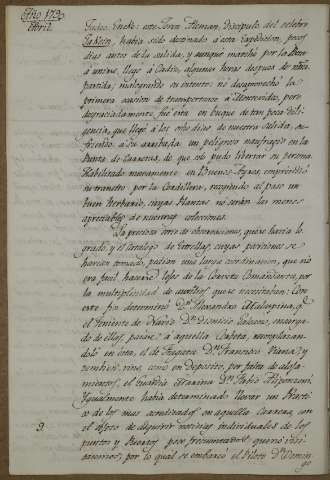 Año 1790
Abril
Tadeo Enke: este Joven Aleman, Discipulo del celebre
habia sido destinado a esta Expedicion, pocos
dias antes de la salida, y aunque marchó por la Posta
a unirse, llegó a Cadiz, algunas horas despues de nra
partida; malogrando su intento: no desaprovechó la
primera ocasion de transportarse a Montevideo, pero
desgraciadamente, fue esta en buque de tan poca dili-
gencia, que llegó a los ocho dias de nuestra salida, su-
friendo a su arribada un peligroso naufragio en la
Punta de Carretas, de que solo pudo libertar su persona.
Habilitado nuevamente en Buenos Ayres, emprendió
su transito por la Cordillera, recogiendo al paso un
buen Herbario, cuyas Plantas no serán las menos
apreciables de nuestras colecciones.
La preciosa serie de observaciones, que se havia lo-
grado, y el Catalogo de Estrellas, cuyas posiciones se
havian tomado, pedian una larga coordinacion, que no
era facil hacerse lejos de la Corveta Comandanta, por
la multiplicidad de auxilios que necesitaban: Con
esto fin determinó Dn. Alexandro Malaspina, q.e
el Teniente de Navio Dn. Dionisio Galiano, encarga-
do de ellas, pasase a aquella Corbeta, reemplazan-
dolo en esta, el de Fragata Dn. Francisco Viana; y
tambien vino como en Deposito, por falta de aloja-
mientos, el Guardia Marina Dn. Fabio Aliponzoni.
9. Igualmente habia determinado llevar un Practi-
co de los mas acreditados en aquella Carrera, con
el objeto de adquirir noticias individuales de los
puertos y Puertos poco frecuentados que no visi-
taremos; por lo qual se embarcó el Piloto Dn. Domin-
go